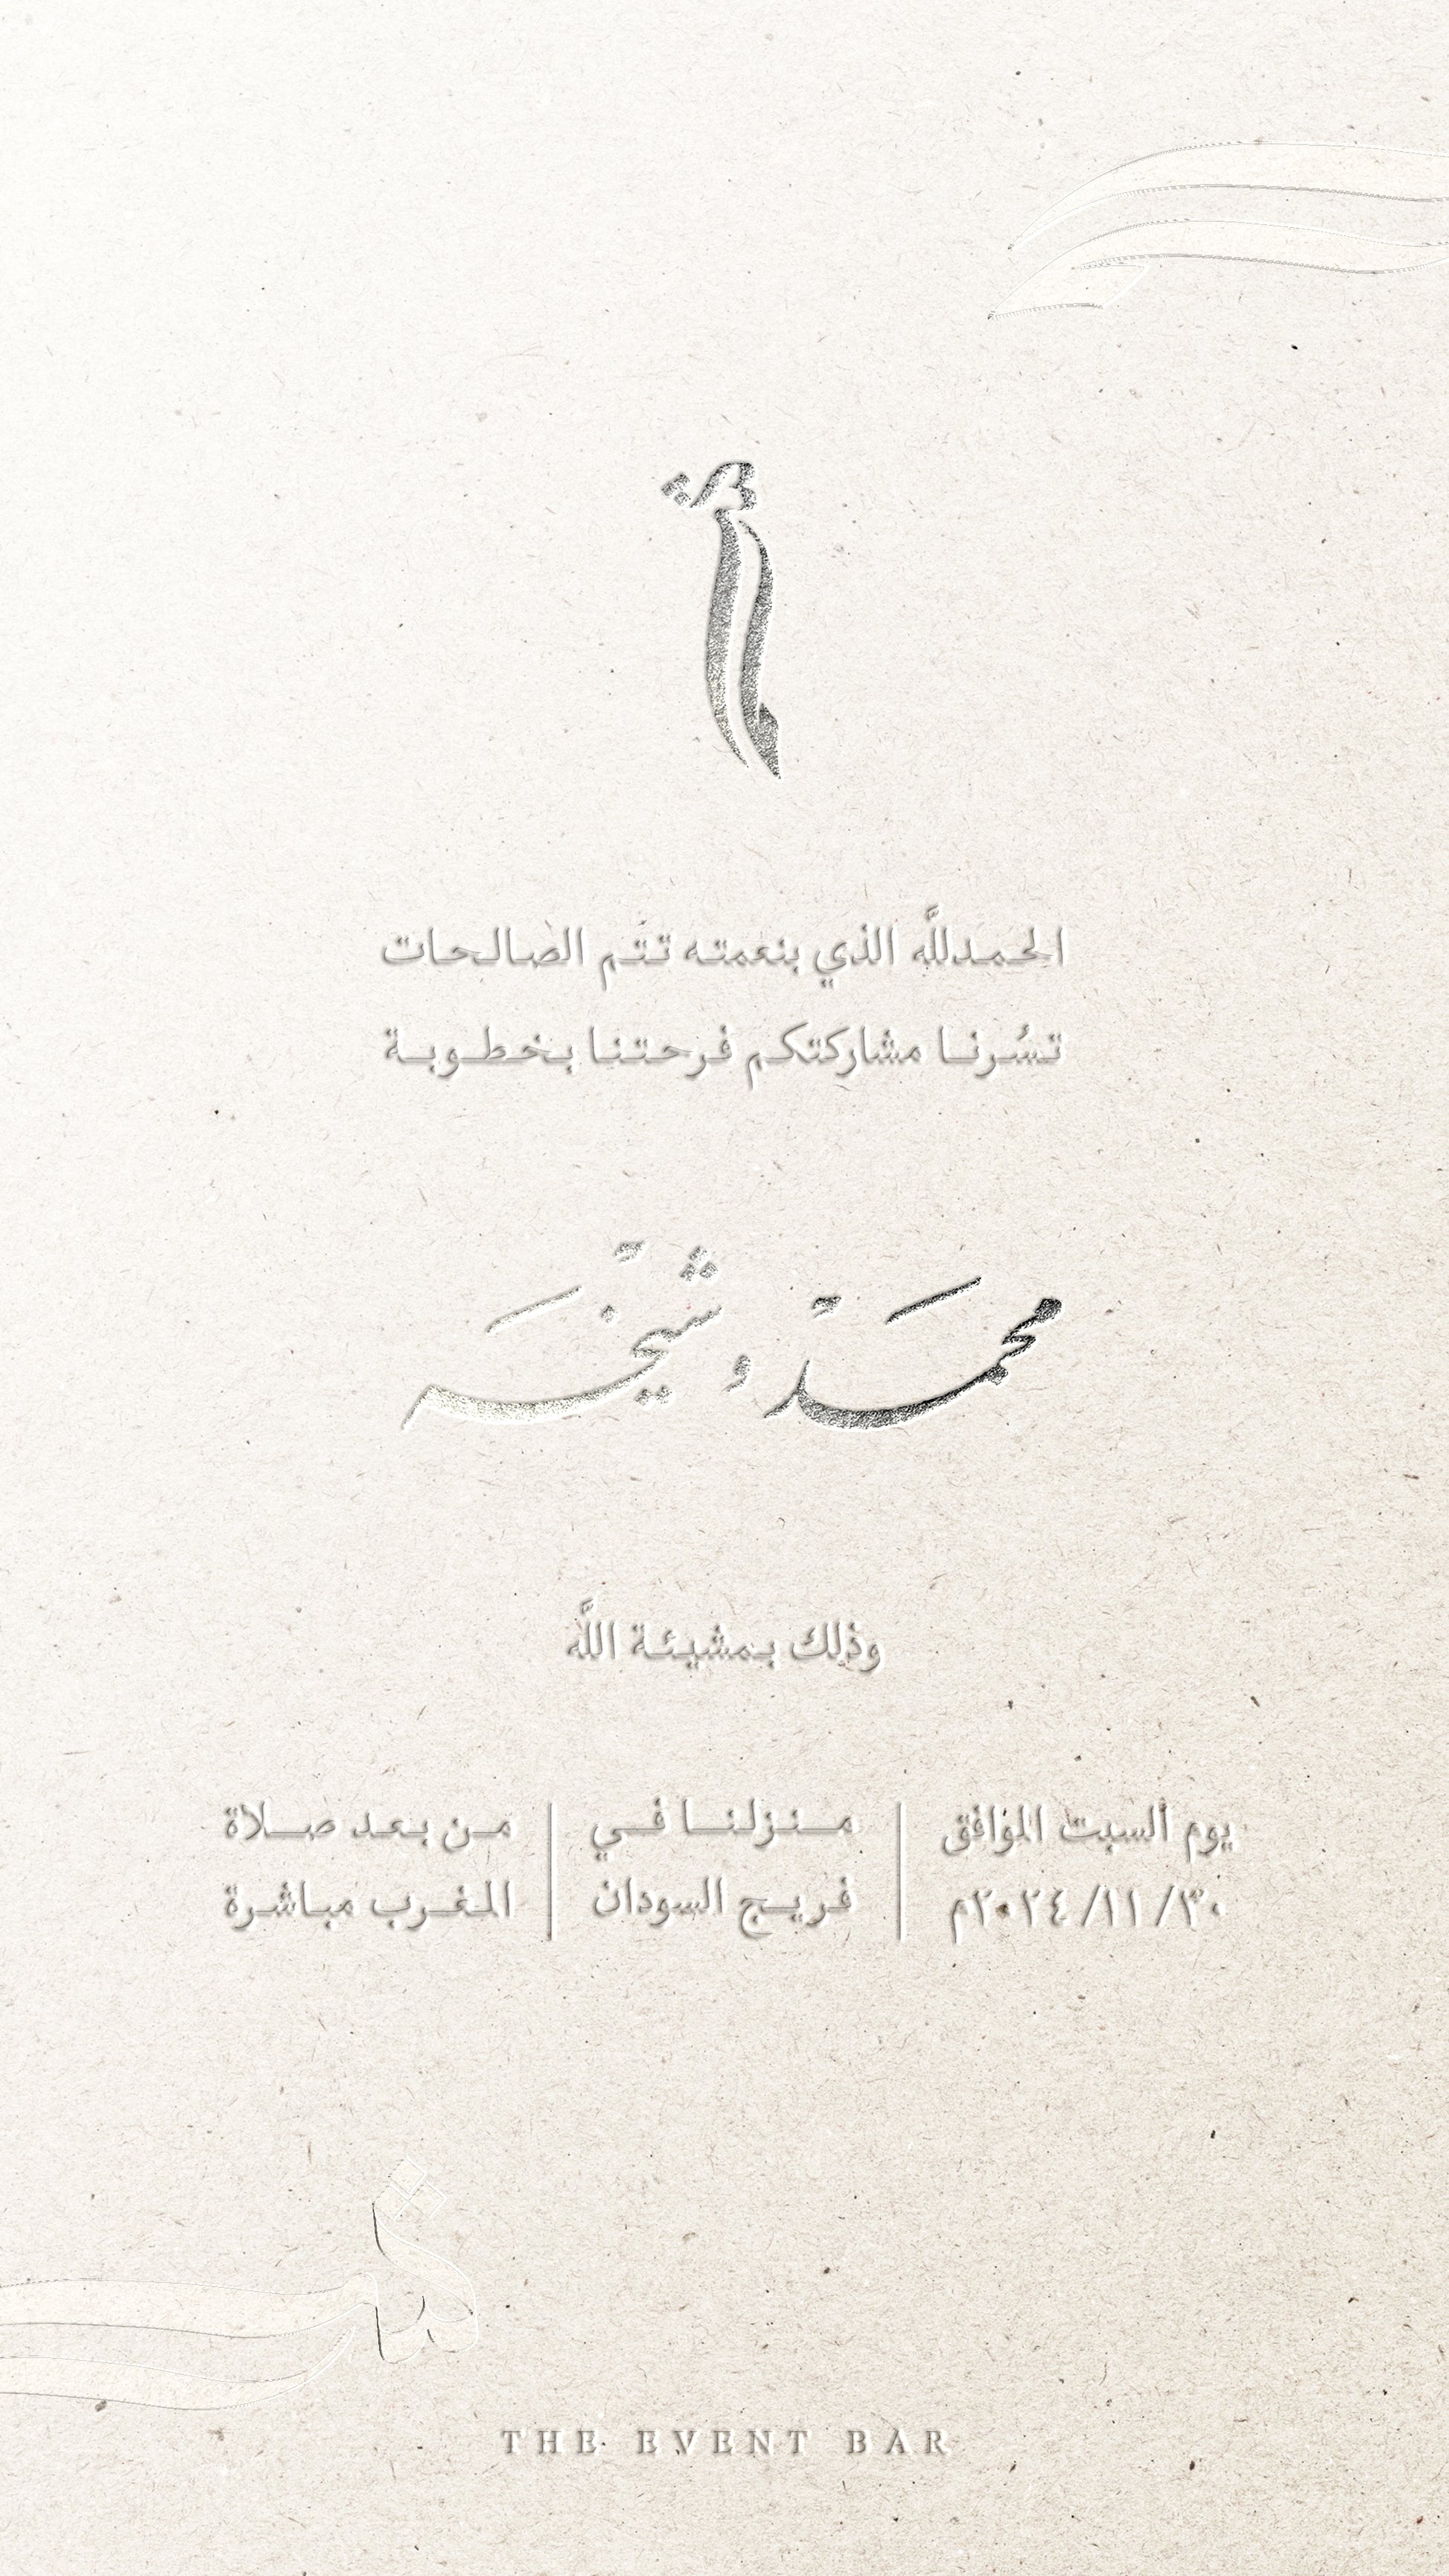 الحمدللَّه الذي بنعمته تتم الصالحات
تسُرنا مشاركتكم فرحتنا بخطوبة
محمد و شيخه
وذلك بمشيئة اللَّه
يوم السبت الموافق
٣٠/ ١١/ ٢٠٢٤م
منزلنا في
فريج السودان
من بعد صلاة
المغرب مباشرة
THE EVENT BAR